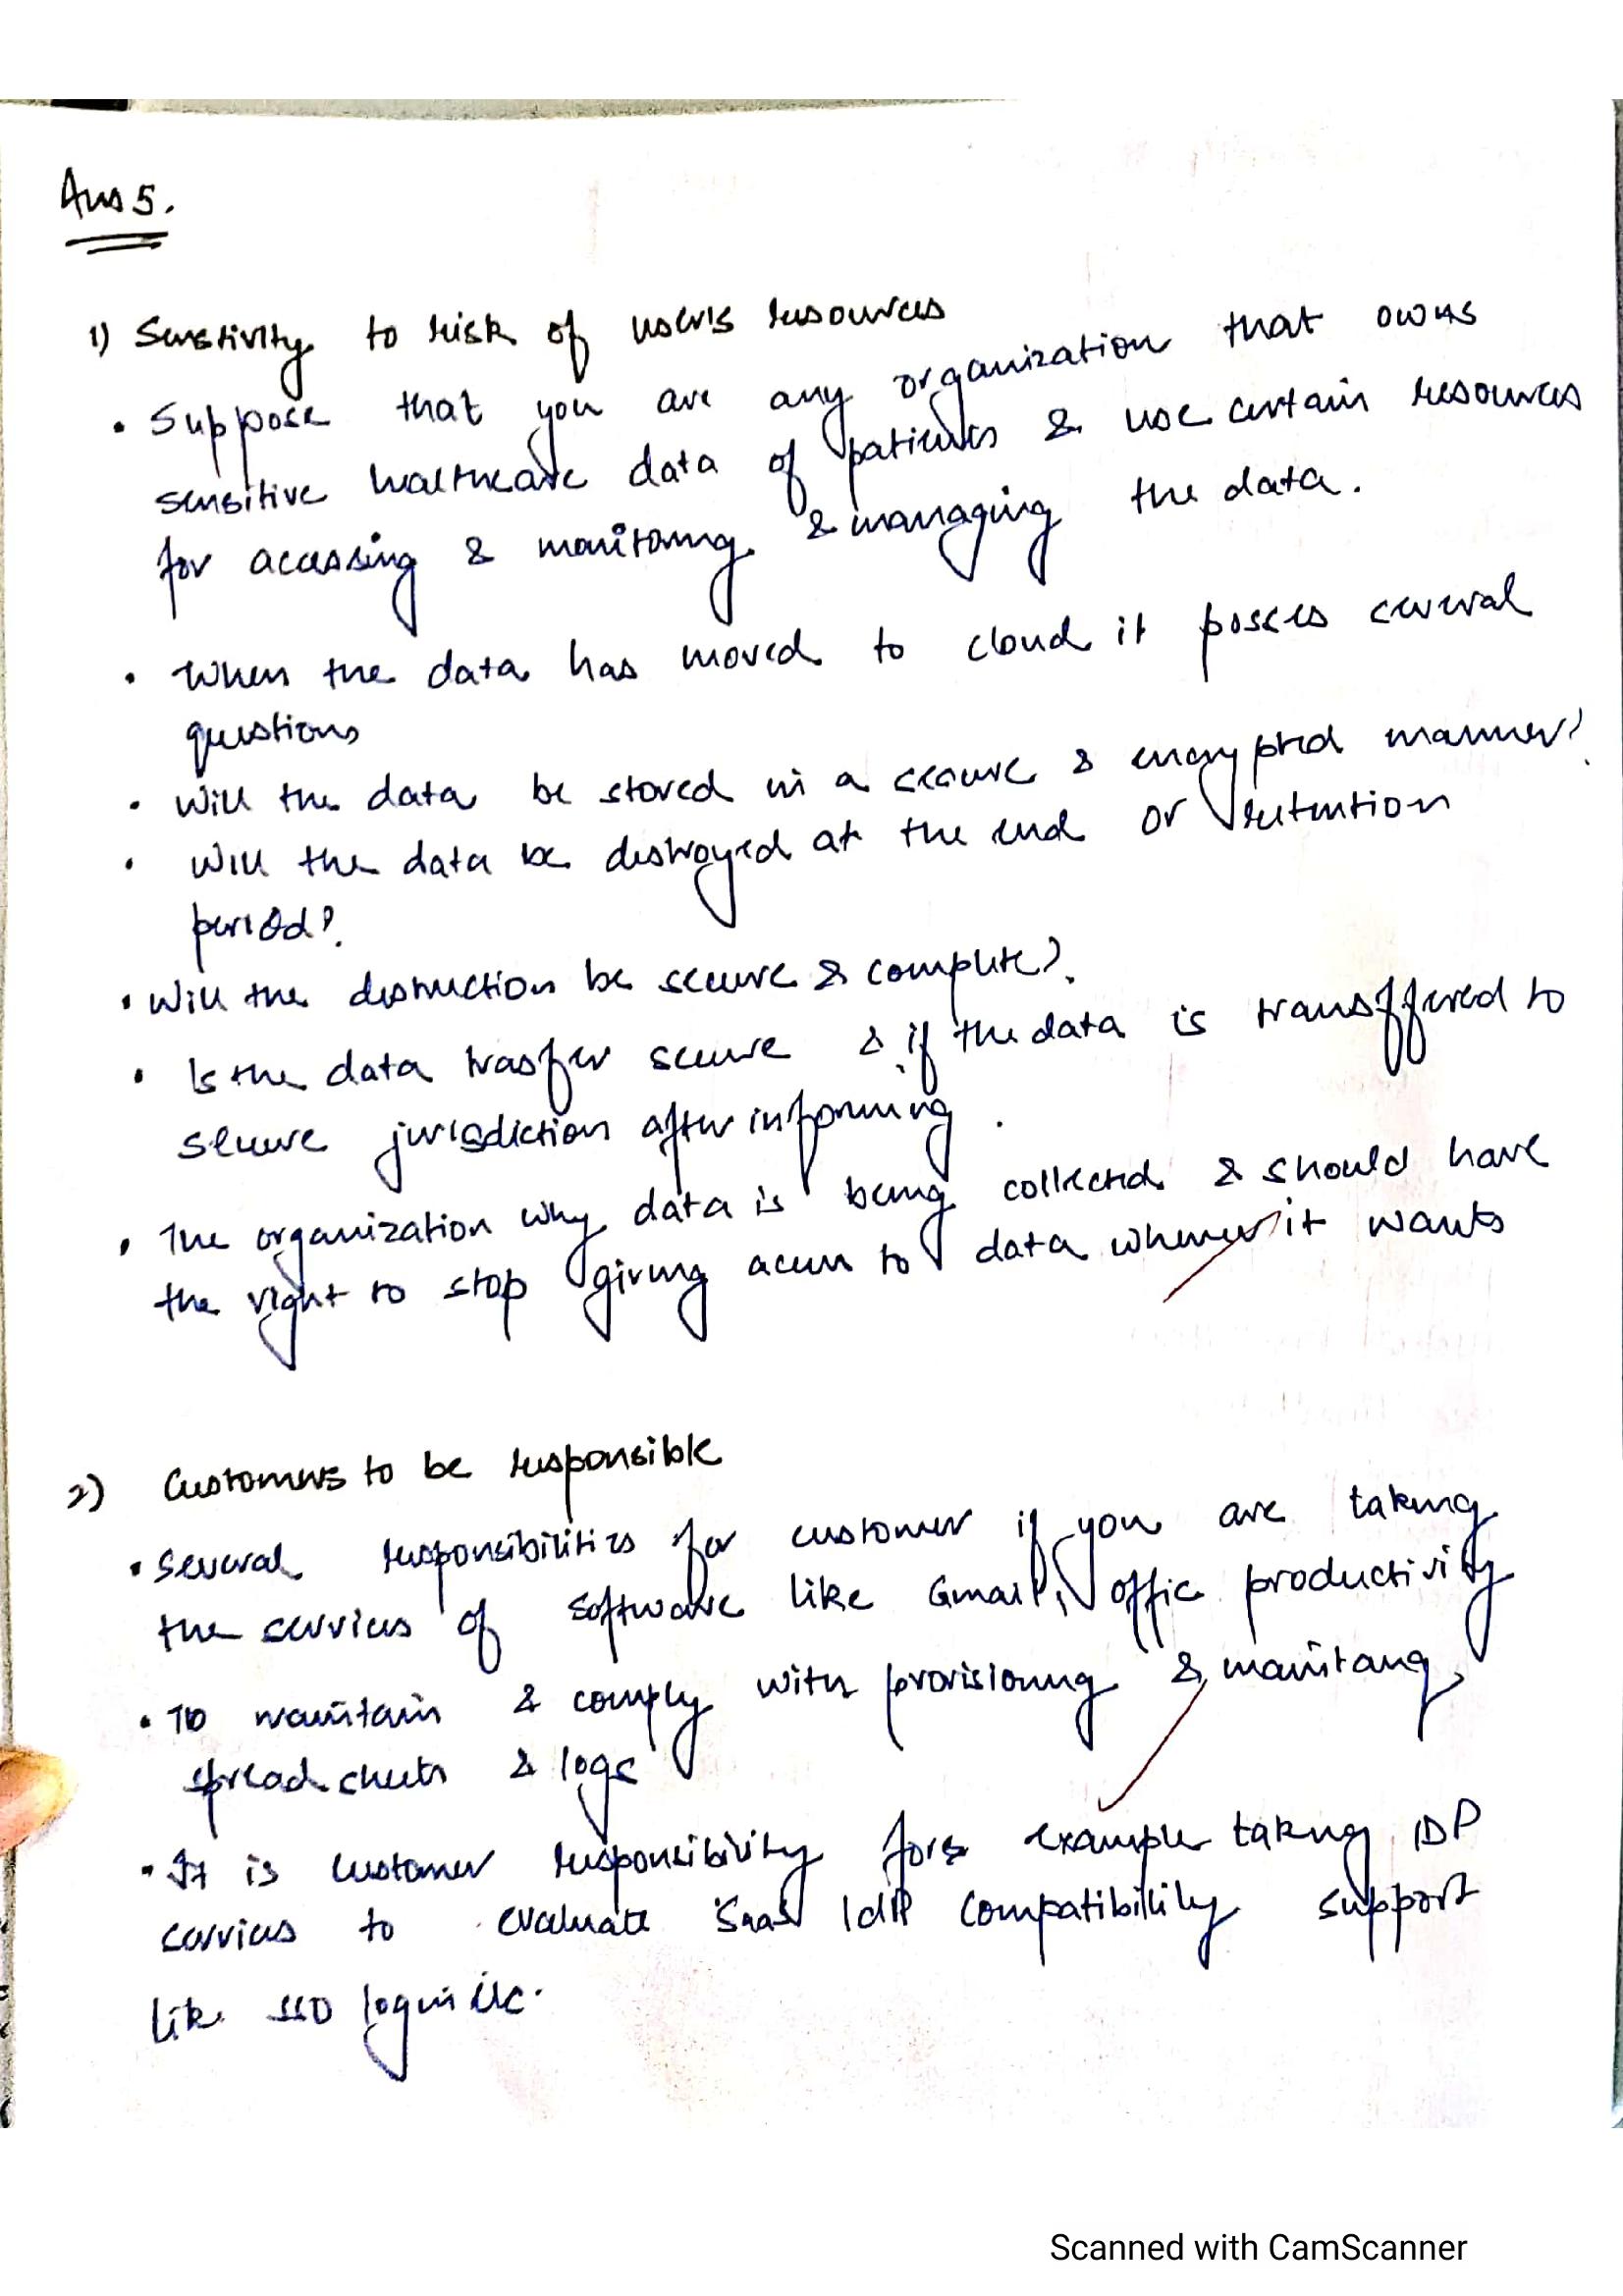 Ans 5.
1) Senstivity to risk of user's resources
• Suppose that you are any organization that owns
sensitive healthcare data of patients & use certain resources
for acessing & monitoring & managing the data.
• When the data has moved to cloud it posses several
questions
• Will the data be stored in a secure & encrypted manner?
• Will the data be destroyed at the end or retention
period?
• Will the destruction be secure & complete?
• Is the data trasfer secure & if the data is transffered to
secure jurisdiction after informing.
• The organization why data is being collected & should have
the right to stop giving access to data whenever it wants
2) Customers to be responsible
• Several responsibilities for customer if you are taking
the services of software like Gmail, offic productivity
• To maintain & comply with provisioning &
spreadsheets & logs
• It is customer responsibility for example taking IDP
services to evaluate SaaS IdP compatibility support
like SSO login etc.
Scanned with CamScanner